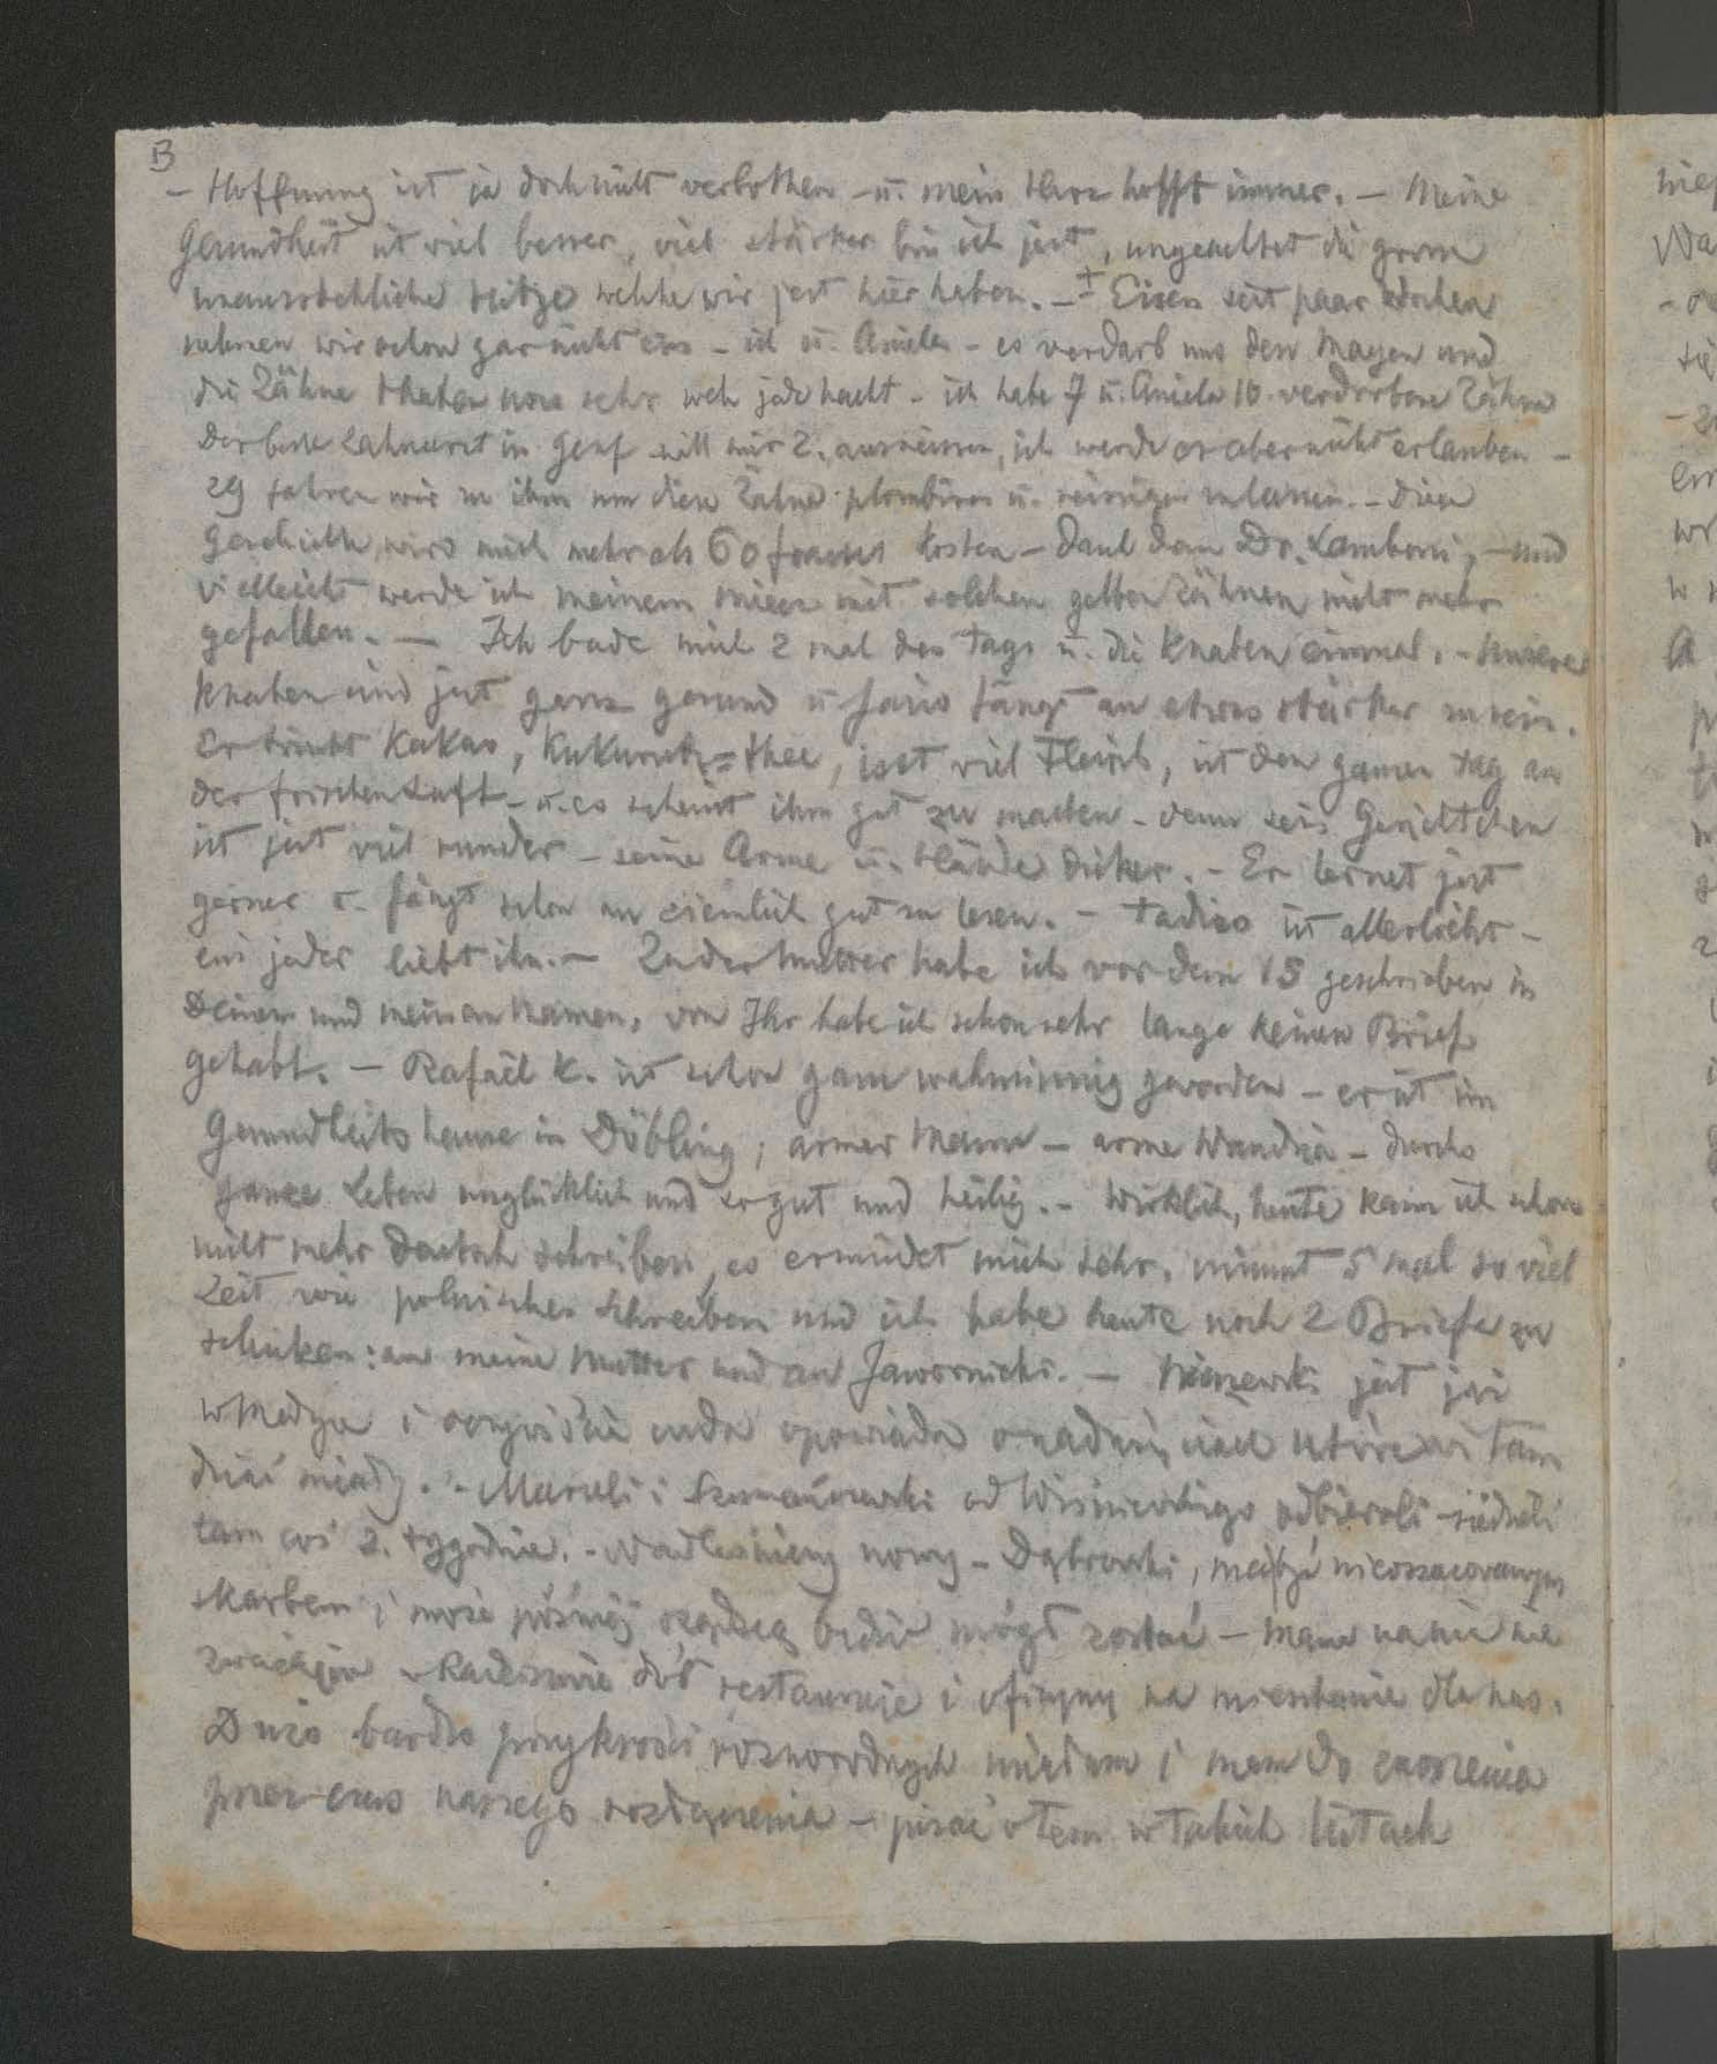 B
- Hoffnung ist ja doch nicht verbothen - u. mein Herz hofft immer. - Meine
Gesundheit ist viel besser, viel stärker bin ich jest, ungeachtet die grosse
unausstehliche Hitze welche wir jest hier haben. - + Eisen seit paar Wochen
nehmen wir schon gar nicht ein - ich u. Aniela - es verdarb uns den Magen und
die Zähne thaten uns sehr weh jede nacht - ich habe 7 u. Aniela 10 verdorbene Zähne
der beste Zahnarzt in Genf will mir 2. ausreissen, ich werde es aber nicht erlauben -
29 fahren wir zu ihm um diese Zähne plombiren u. reinigen zu lassen. - Diese
Geschichte wird mich mehr als 60 francs kosten - Dank dem Dr. Lamboni, - und
vielleicht werde ich meinem mit solchen gelben Zähnen nicht mehr
gefallen. - Ich bade mich 2 mal des Tags u. die Knaben einmal. - Unsere
Knaben sind jest ganz gesund u Jasio fängt an etwas stärker zu sein.
Er trinkt Kakao, Kukurutz=thee, isst viel Fleisch, ist den ganzen Tag an
der frischen Luft - u. es scheint ihm gut zu machen - denn sein Gesichtchen
ist jest viel runder - seine Arme u. Hände dicker. - Er lernet jest
gerner u. fängt schon an ziemlich gut zu lesen. - Tadzio ist allerliebst -
ein jeder liebt ihn. - Zu der Mutter habe ich vor dem 15 geschrieben in
Deinen und meinen Namen, von Ihr habe ich schon sehr lange keinen Brief
gehabt. - Rafaël K. ist schon ganz wahnsinnig geworden - er ist im
Gesundheitshause in Döbling; armer Mann - arme Wandzia - durchs
ganze Leben unglücklich und so gut und heilig. - Wirklich, heute kann ich schon
nicht mehr Deutsch schreiben, es ermüdet mich sehr, nimmt 5 mal so viel
Zeit wie polnisches Schreiben und ich habe heute noch 2 Briefe zu
schicken: an meine Mutter und an Jawornicki. - jest już
w Medyce i cuda opowiada o tam
dziać miały. - Maruli i Szumańczowski od Wiśniewskiego odbierali - siedzieli
tam coś 2. tygodnie. - Nadleśniczy nowy - Dąbrowski, ma być nieoszacowanym
skarbem i może później rządzcą będzie mógł zostać - Mama na nic nie
zważając w Radziszowie dwór restauruje i oficyny na mieszkanie dla nas.
Dużo bardzo przykrości różnorodnych miałam i mam do znoszenia
przez czas naszego rozłączenia - pisać o tem w takich listach